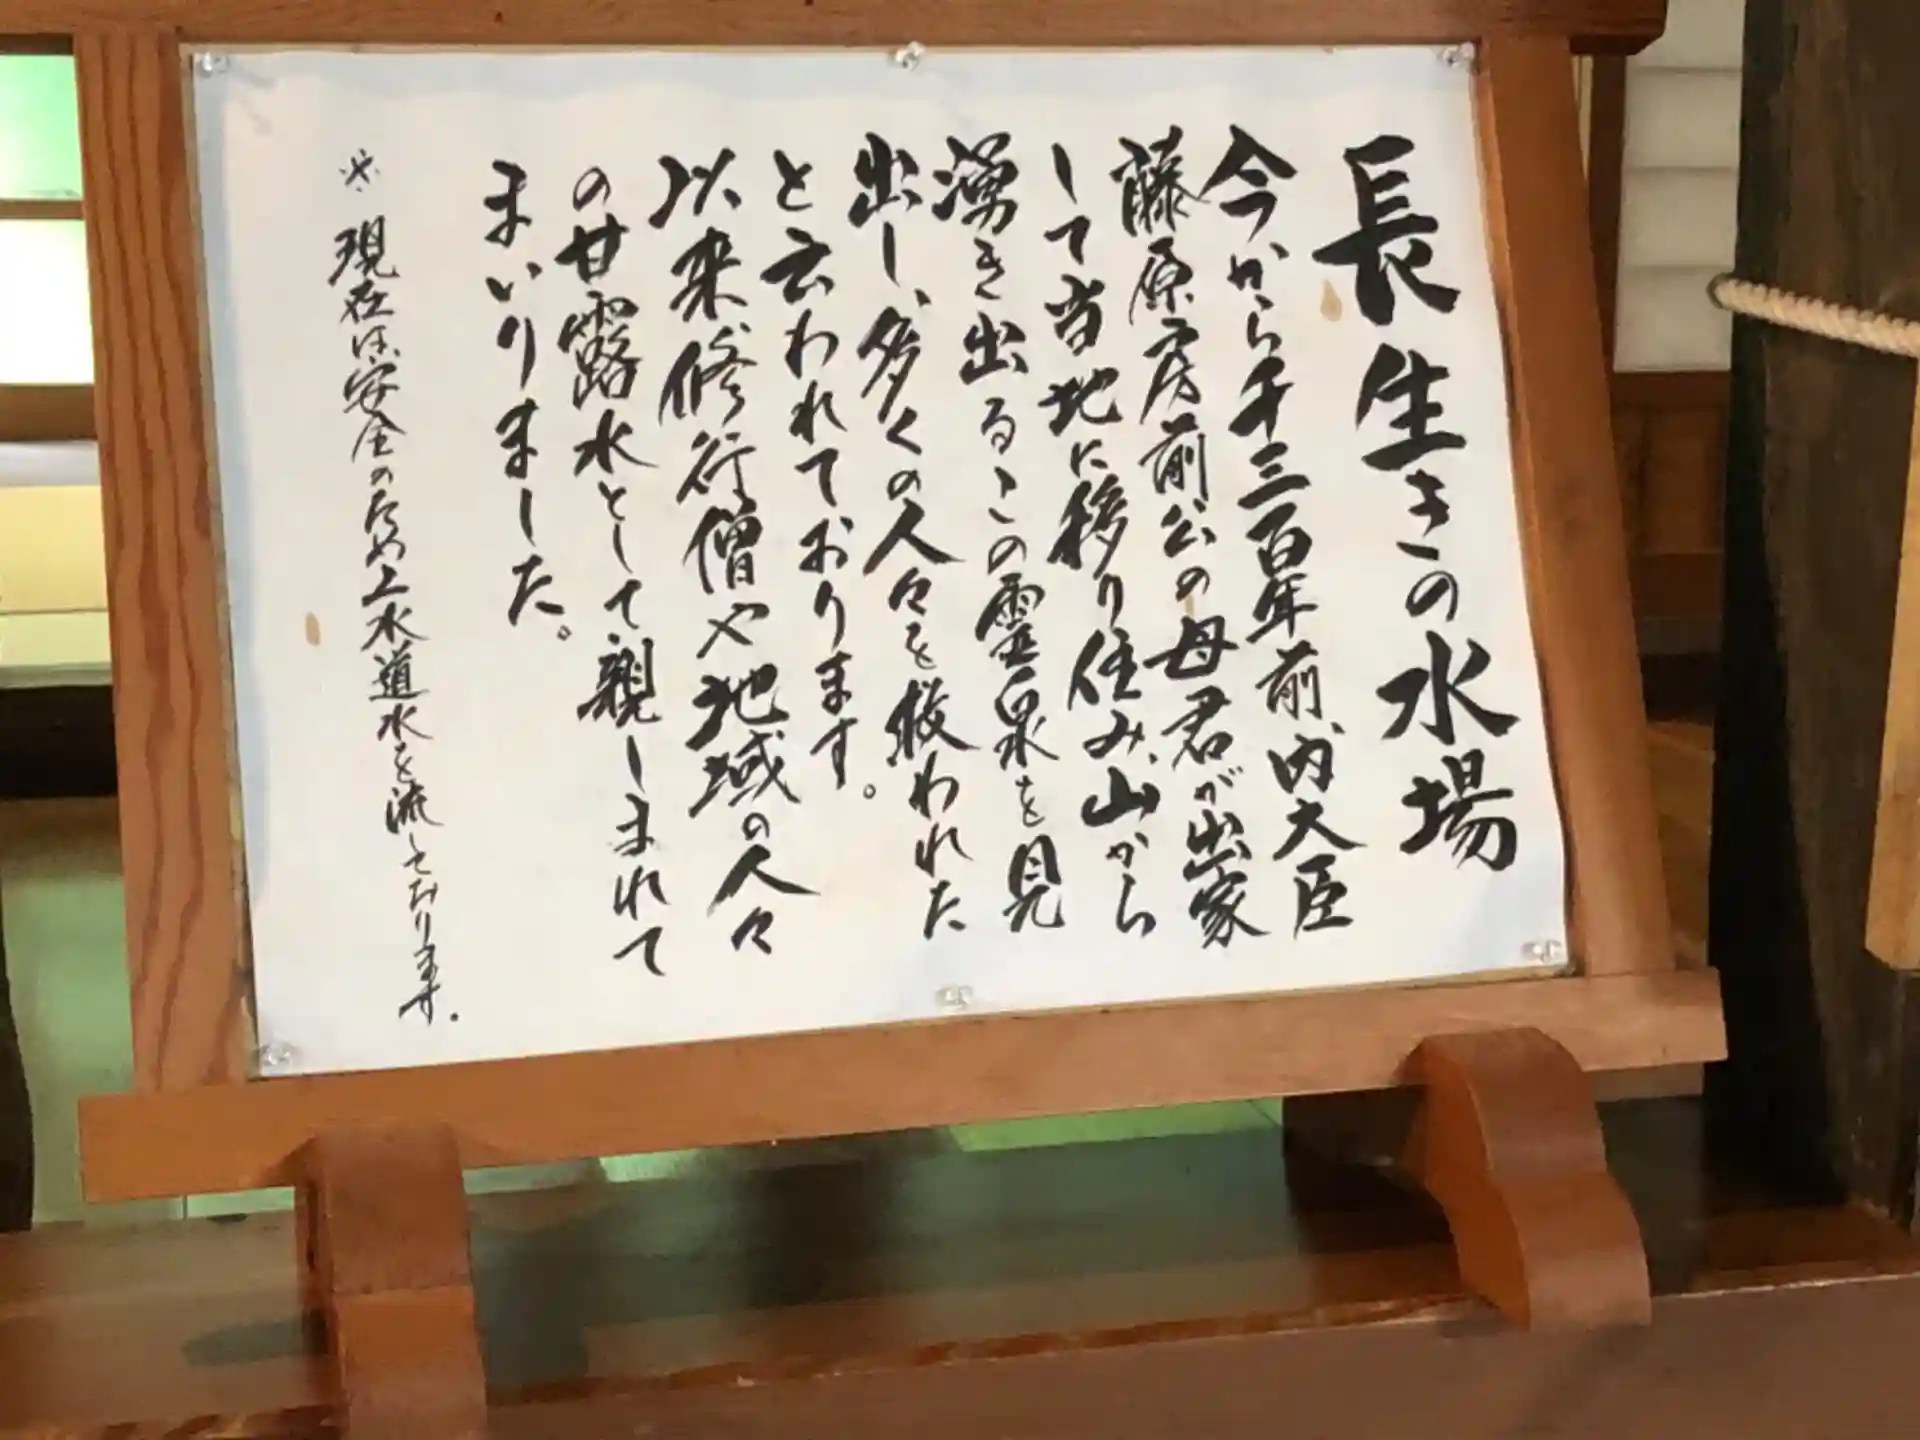 長生きの水場
今から千三百年前、内大臣
藤原房前公の母君が出家
して当地に移り住み、山から
湧き出るこの霊泉を見
出し、多くの人々を救われた
と云われております。
以来修行僧や地域の人々
の甘露水として親しまれて
まいりました。
※現在は、安全のため上水道水を流しております。